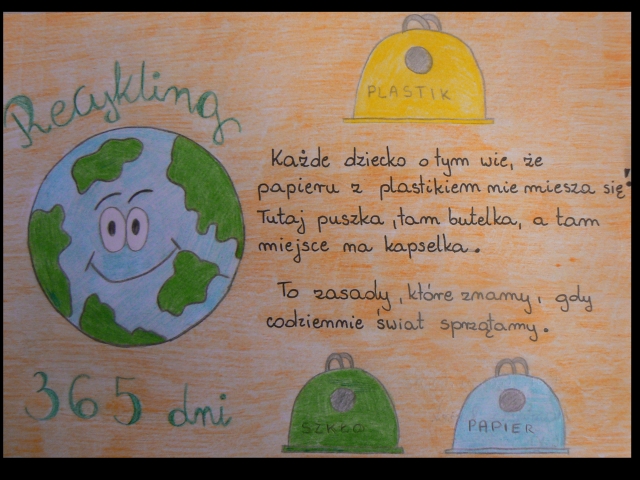 Recykling
PLASTIK
Każde dziecko o tym wie, że
papieru z plastikiem nie miesza się!
Tutaj puszka, tam butelka, a tam
miejsce ma kapselka.
To zasady, które znamy, gdy
codziennie świat sprzątamy.
365 dni
SZKŁO
PAPIER